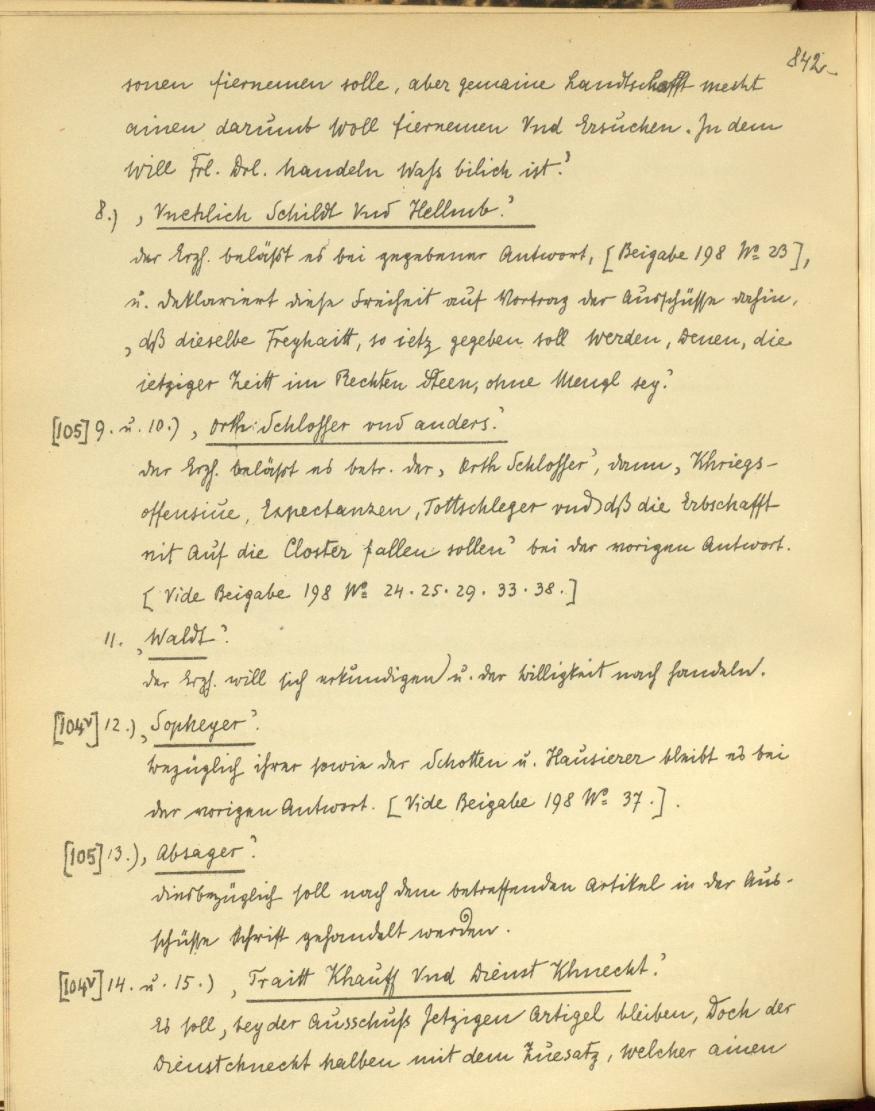 842.
sonen fiernemen solle, aber gemaine Landtschafft mecht
ainen darumb woll fiernemen Vnd Ersuchen. In dem
will Frl. Drl. handeln Waß bilich ist.'
8.) ‚Vnehlich Schildt Vnd Hellmb.'
der Erzh. beläßt es bei gegebener Antwort, [Beigabe 198 No 23],
u. deklariert diese Freiheit auf Vortrag der Ausschüsse dahin,
‚dß dieselbe Freyhaitt, so ietz gegeben soll werden, Denen, die
ietziger Zeitt im Rechten Steen, ohne Mengl sey.'
[105] 9. u. 10.) ‚Orth Schlosser vnd anders.'
der Erzh. beläßt es betr. der ‚Orth Schlosser', dann ‚Khriegs-
offensiue, Expectanzen, Tottschleger vnd dß die Erbschafft
nit Auf die Closter fallen sollen' bei der vorigen Antwort.
[Vide Beigabe 198 No 24. 25. 29. 33. 38.]
11. ‚Waldt'.
der Erzh. will sich erkundigen u. der Billigkeit nach handeln.
[104v] 12.) ‚Sopheyer'.
bezüglich ihrer sowie der Schotten u. Hausierer bleibt es bei
der vorigen Antwort. [Vide Beigabe 198 No 37.].
[105] 13.) ‚Absager'.
diesbezüglich soll nach dem betreffenden Artikel in der Aus-
schüsse Schrift gehandelt werden.
[104v] 14. u. 15.) ‚Traitt Khauff Vnd Dienst Khnecht.'
Es soll ‚bey der Ausschuß Jetzigen Artigel bleiben, Doch der
Dienstchnecht halben mit dem Zuesatz, welcher ainen